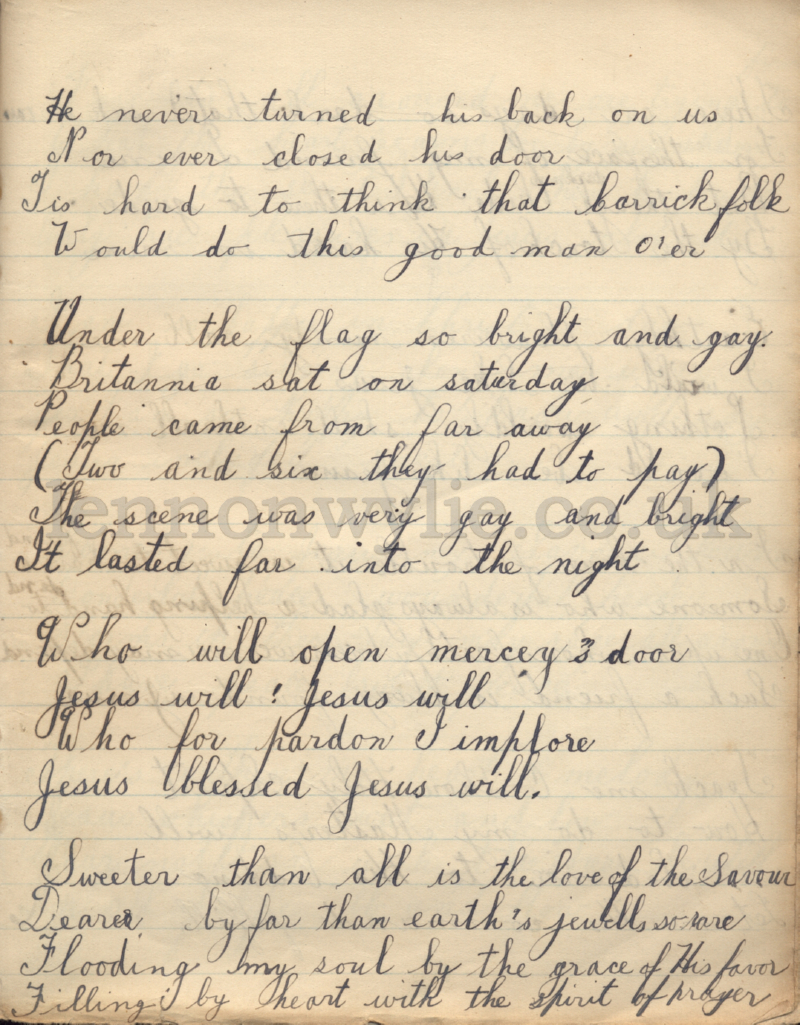 He never turned his back on us
Nor ever closed his door
Tis hard to think that barrick folk
Would do this good man o'er
Under the flag so bright and gay.
Britannia sat on saturday
People came from far away
(Two and six they had to pay)
The scene was very gay and bright
It lasted far into the night
lennonwylie.co.uk
Who will open mercey's door
Jesus will! Jesus will
Who for pardon I implore
Jesus blessed Jesus will.
Sweeter than all is the love of the Savour
Dearer by far than earth's jewells so rare
Flooding my soul by the grace of His favor
Filling by heart with the spirit of prayer